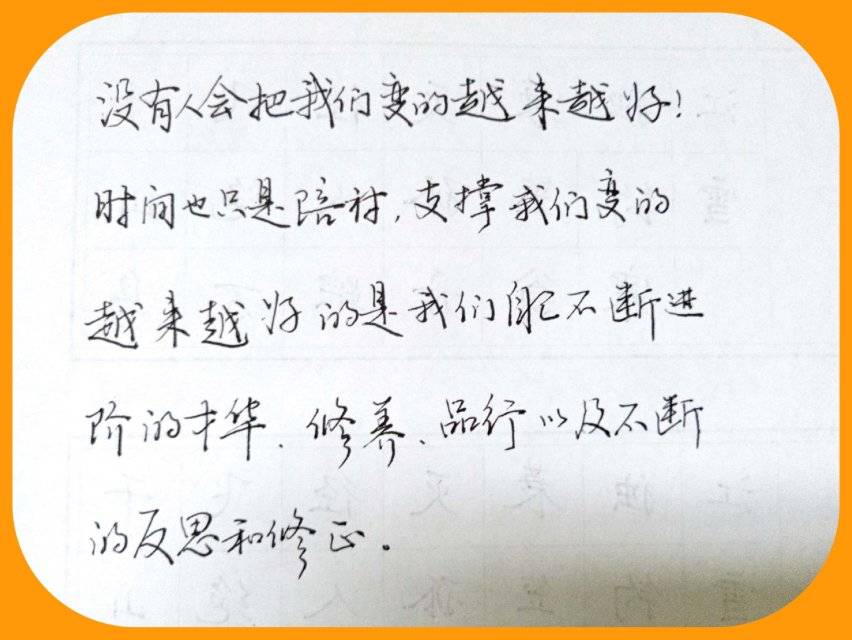 没有人会把我们变的越来越好!
时间也只是陪衬,支撑我们变的
越来越好的是我们自己不断进
阶的才华、修养、品行以及不断
的反思和修正。